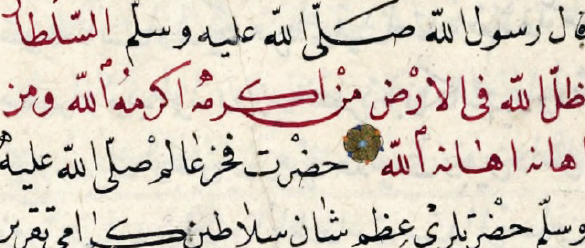 قال رسول الله صلّى الله عليه وسلّم السّلطان
ظلّ الله فى الارْض منْ اكرمهُ اكرمهُ الله ومن
اهانه اهانه الله حضْرت فخر عالمْ صلّى الله عليه
وسلّم حضْرتلرىْ عظم شان سلاطين كرامى تقرير